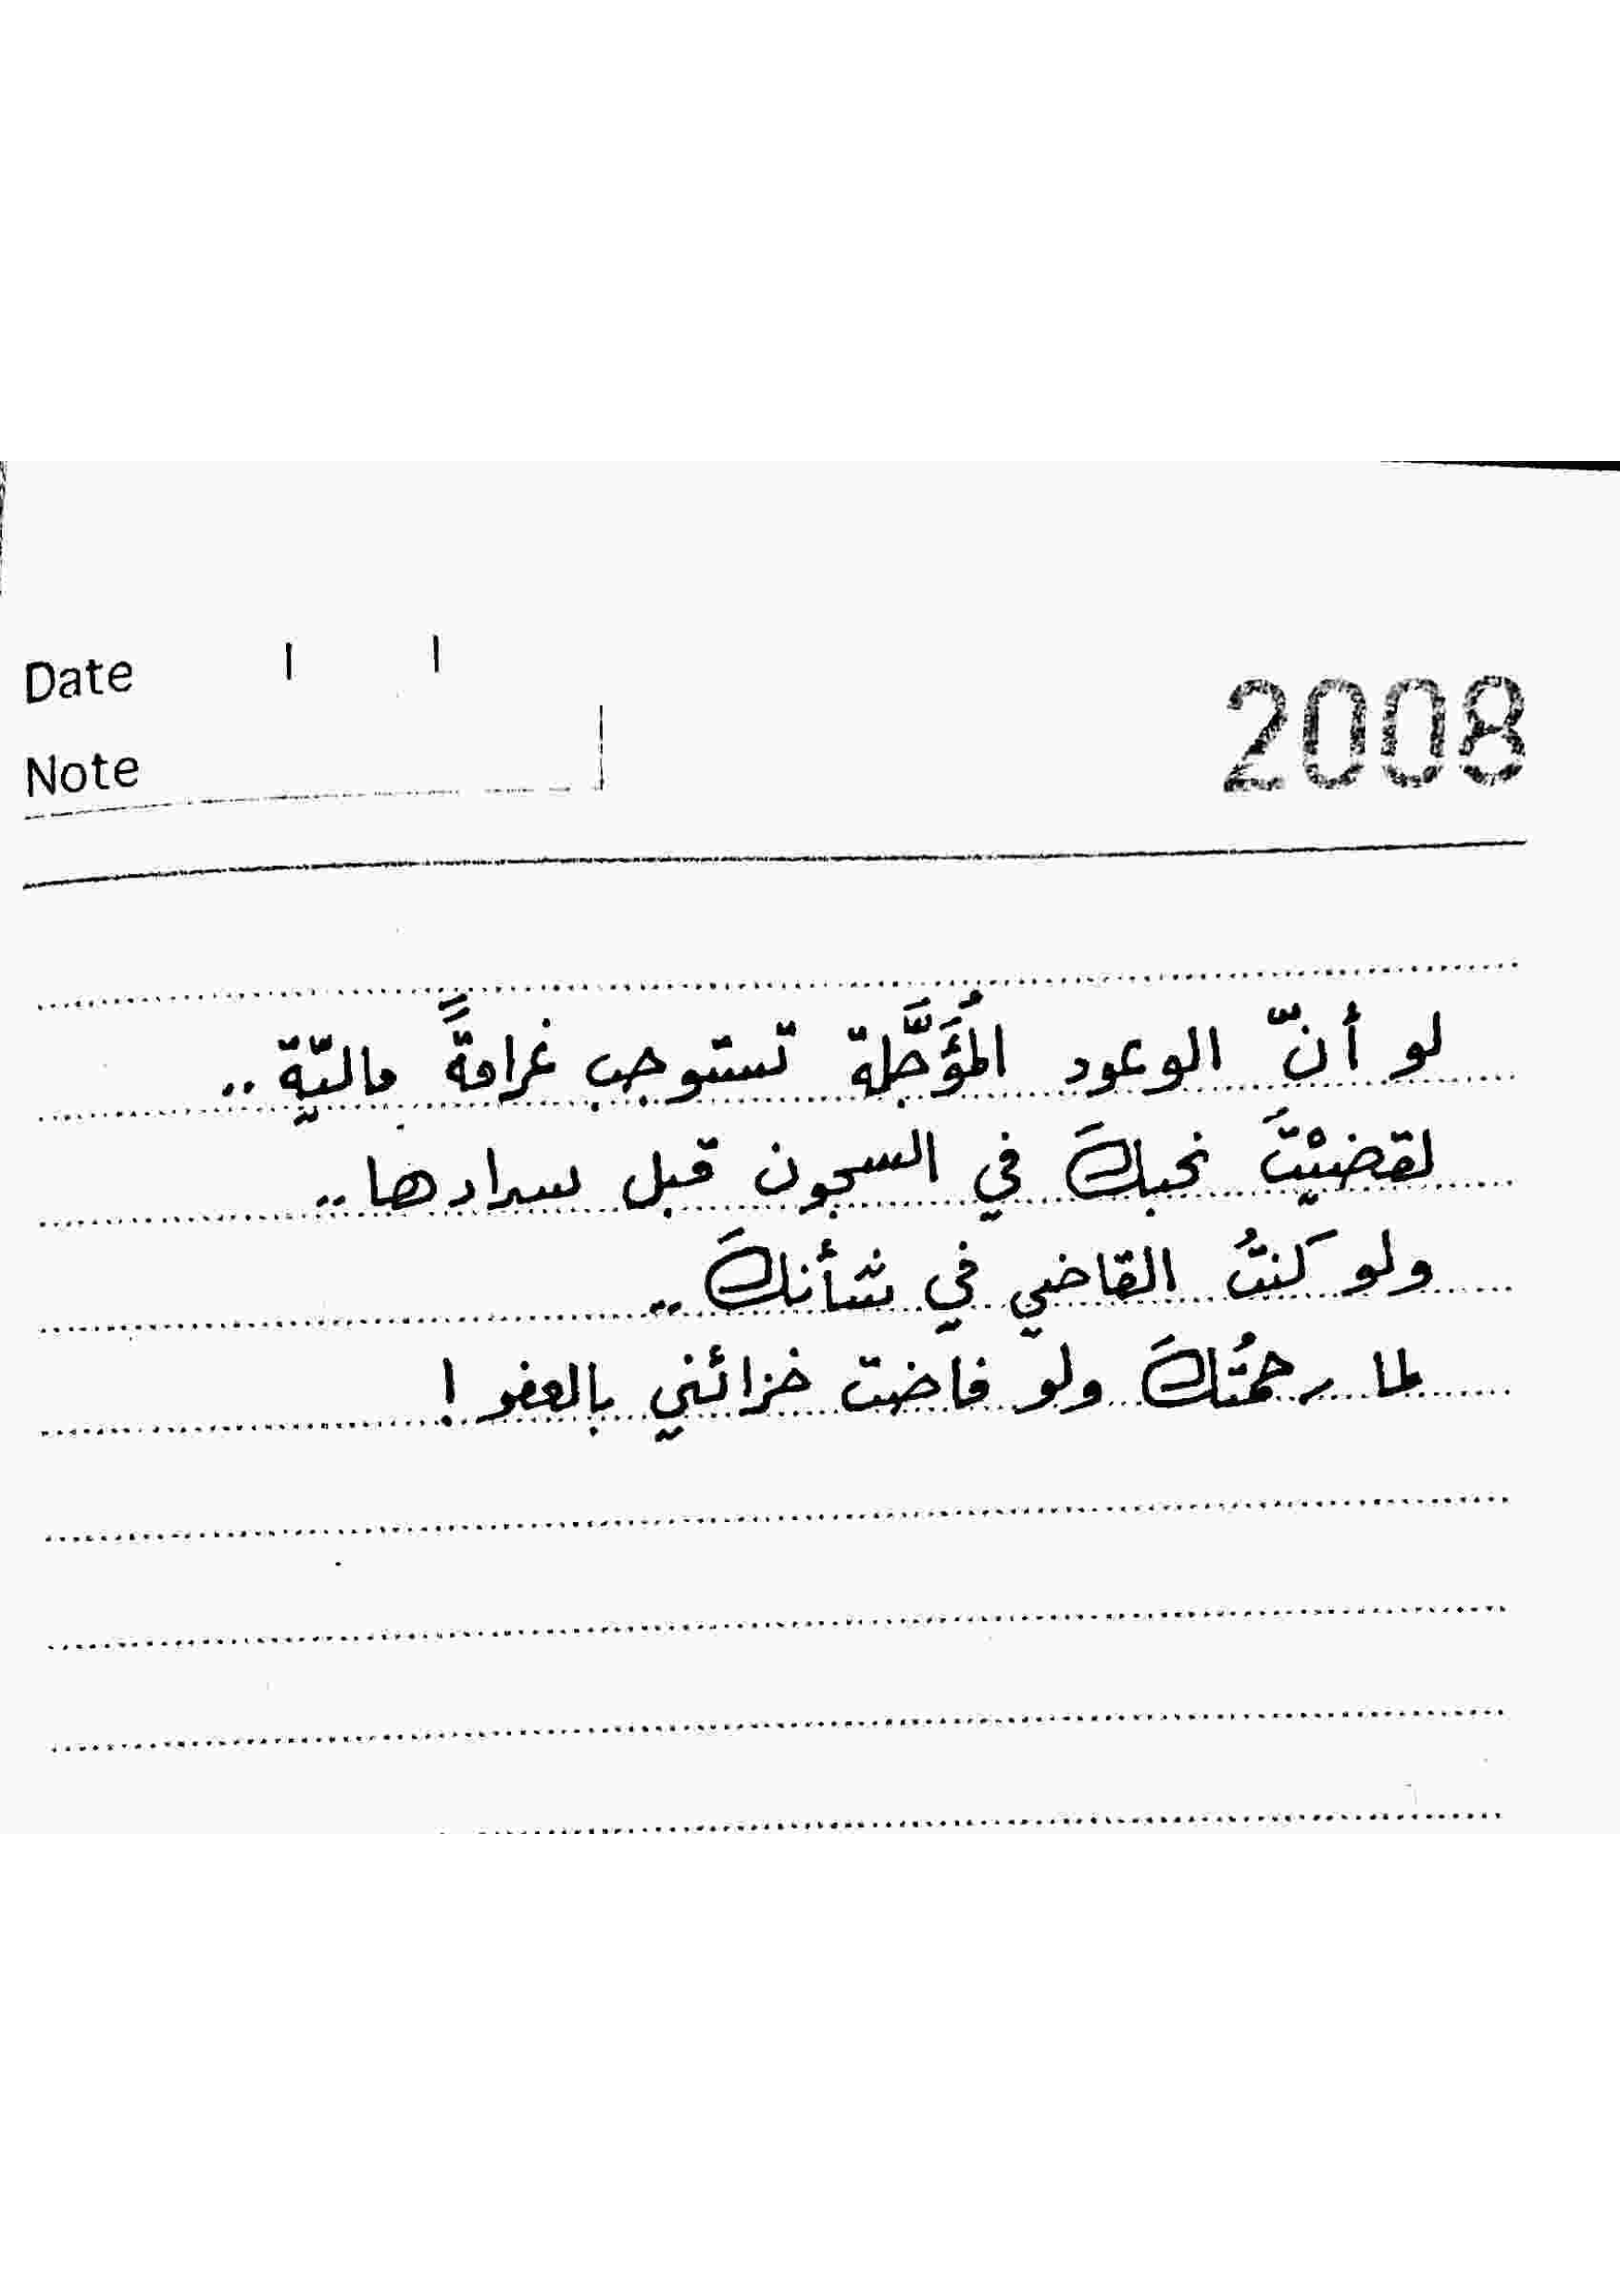 Date / /
2008
Note
لو أنّ الوعود المُؤَجَّلة تستوجب غرامةً ماليّة ..
لقضيْتَ نحبكَ في السجون قبل سدادها ..
ولو كَنتُ القاضي في شأنكَ ..
لما رحمتُكَ ولو فاضت خزائني بالعفو !